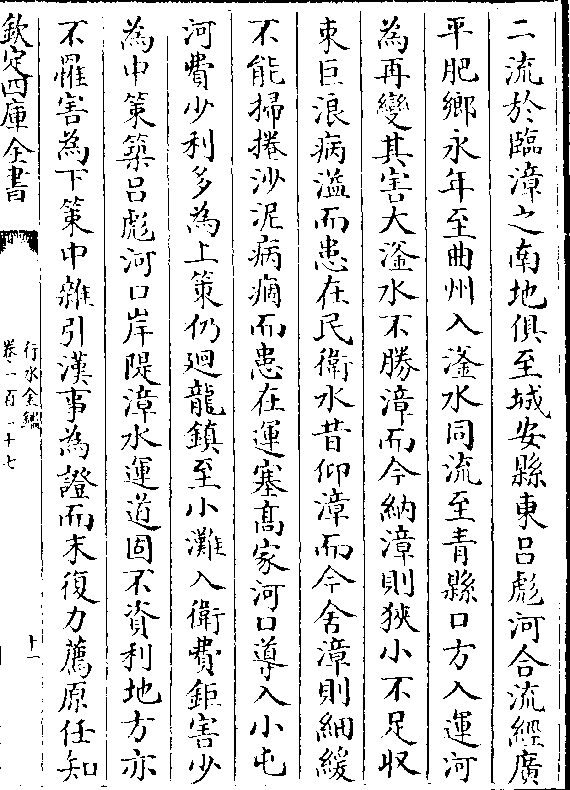 二流於臨漳之南地俱至城安縣東吕彪河合流經廣
平肥鄉永年至曲州入滏水同流至青縣口方入運河
為再變其害大滏水不勝漳而今納漳則狹小不足収
束巨浪病溢而患在民衛水昔仰漳而今舍漳則細緩
不能掃捲沙泥病痼而患在運塞髙家河口導入小屯
河費少利多為上策仍廻龍鎮至小灘入衛費鉅害少
為中策築吕彪河口岸隄漳水運道固不資利地方亦
不罹害為下策中雜引漢事為證而末復力薦原任知
欽定四庫全書
行水金鑑
卷一百一十七
十一